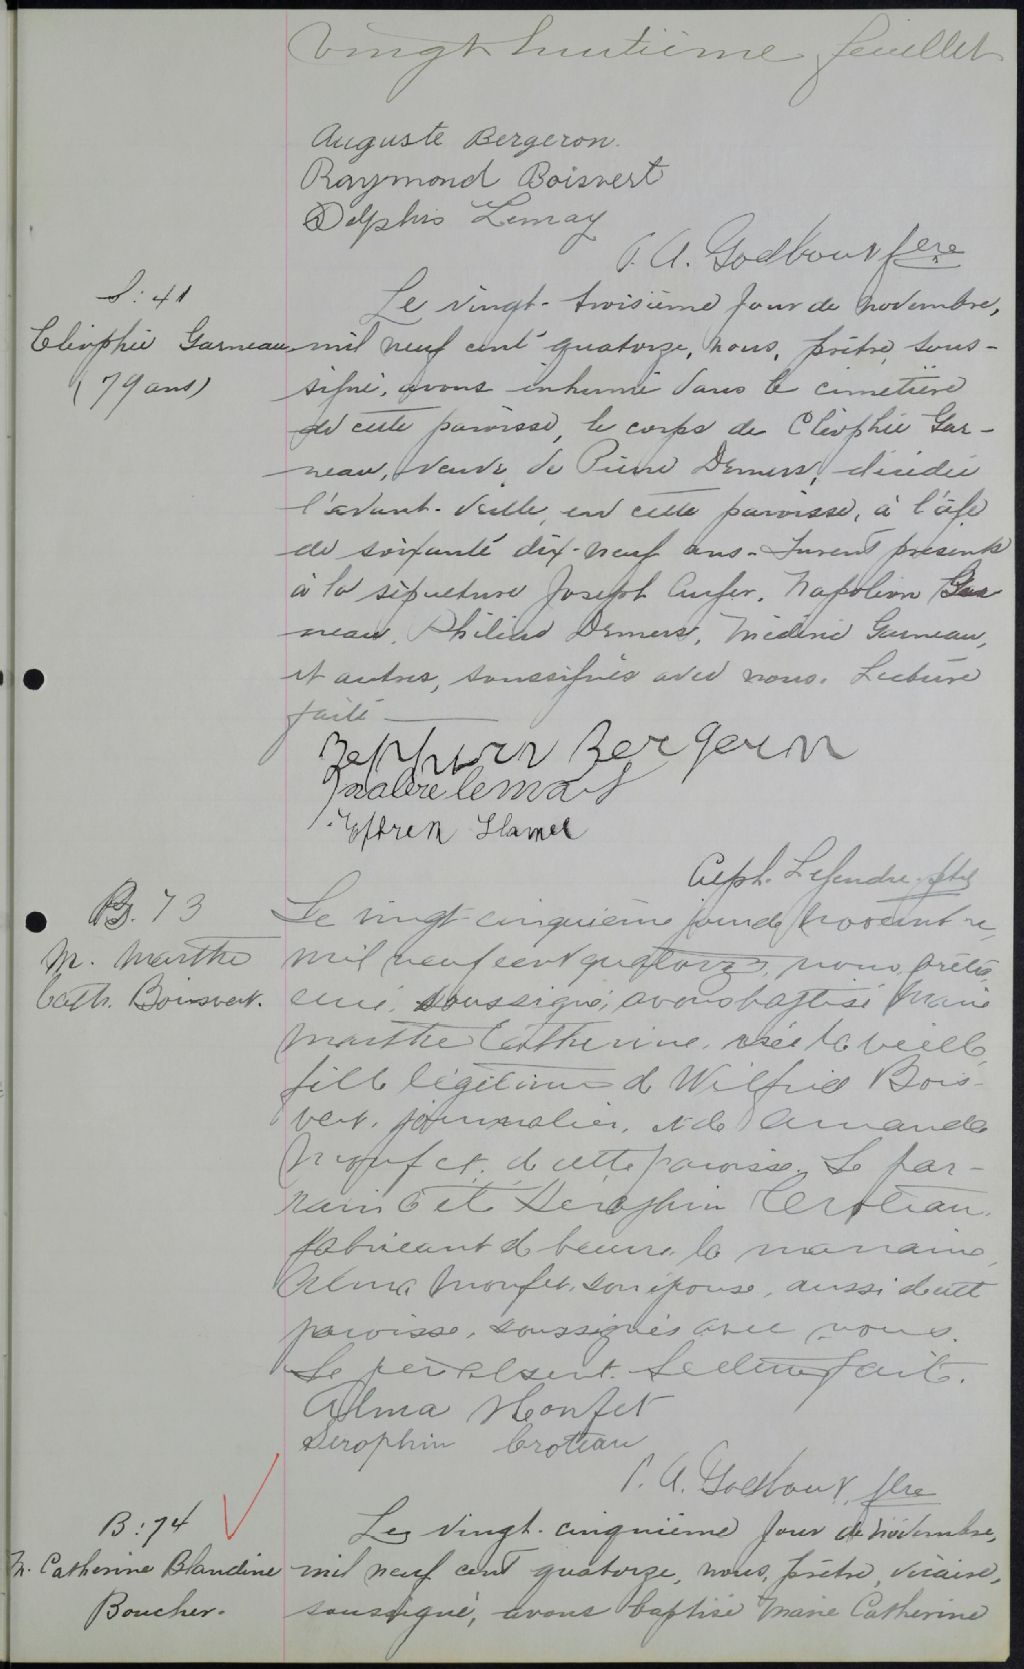 vingt huitième feuillet
Auguste Bergeron.
Raymond Boisvert
Delphis Lemay
P. A. Godbout ptre
S: 41
Cléophée Garneau
(79 ans)
Le vingt-troisième jour de novembre,
mil neuf cent quatorze, nous, prêtre, sous-
signé, avons inhumé dans le cimetière
de cette paroisse, le corps de Cléophée Gar-
neau, veuve de Pierre Demers, décédée
l'avant-veille, en cette paroisse, à l'âge
de soixante dix-neuf ans. Furent présents
à la sépulture Joseph Auger, Napoléon Gar
neau, Philias Demers, Médéric Garneau,
et autres, soussignés avec nous. Lecture
faite
Bergeron
Lemay
Ephrem Hamel
Alph. Legendre ptre
B. 73
M. Marthe
Cath. Boisvert.
Le vingt-cinquième jour de novembre,
mil neuf cent quatorze, nous, prêtre,
curé, soussigné, avons baptisé Marie
Marthe Catherine, née la veille,
fille légitime de Wilfrid Bois-
vert, journalier, et de Amanda
Monfet, de cette paroisse. Le par-
rain a été Séraphin Croteau,
fabricant de beurre, la marraine,
Alma Monfet, son épouse, aussi de cette
paroisse, soussignés avec nous.
Le père absent. Lecture faite.
Alma Monfet
Serophin Croteau
P. A. Godbout, ptre
B: 74
M. Catherine Blandine
Boucher.
Le vingt-cinquième jour de novembre,
mil neuf cent quatorze, nous, prêtre, vicaire,
soussigné, avons baptisé Marie Catherine